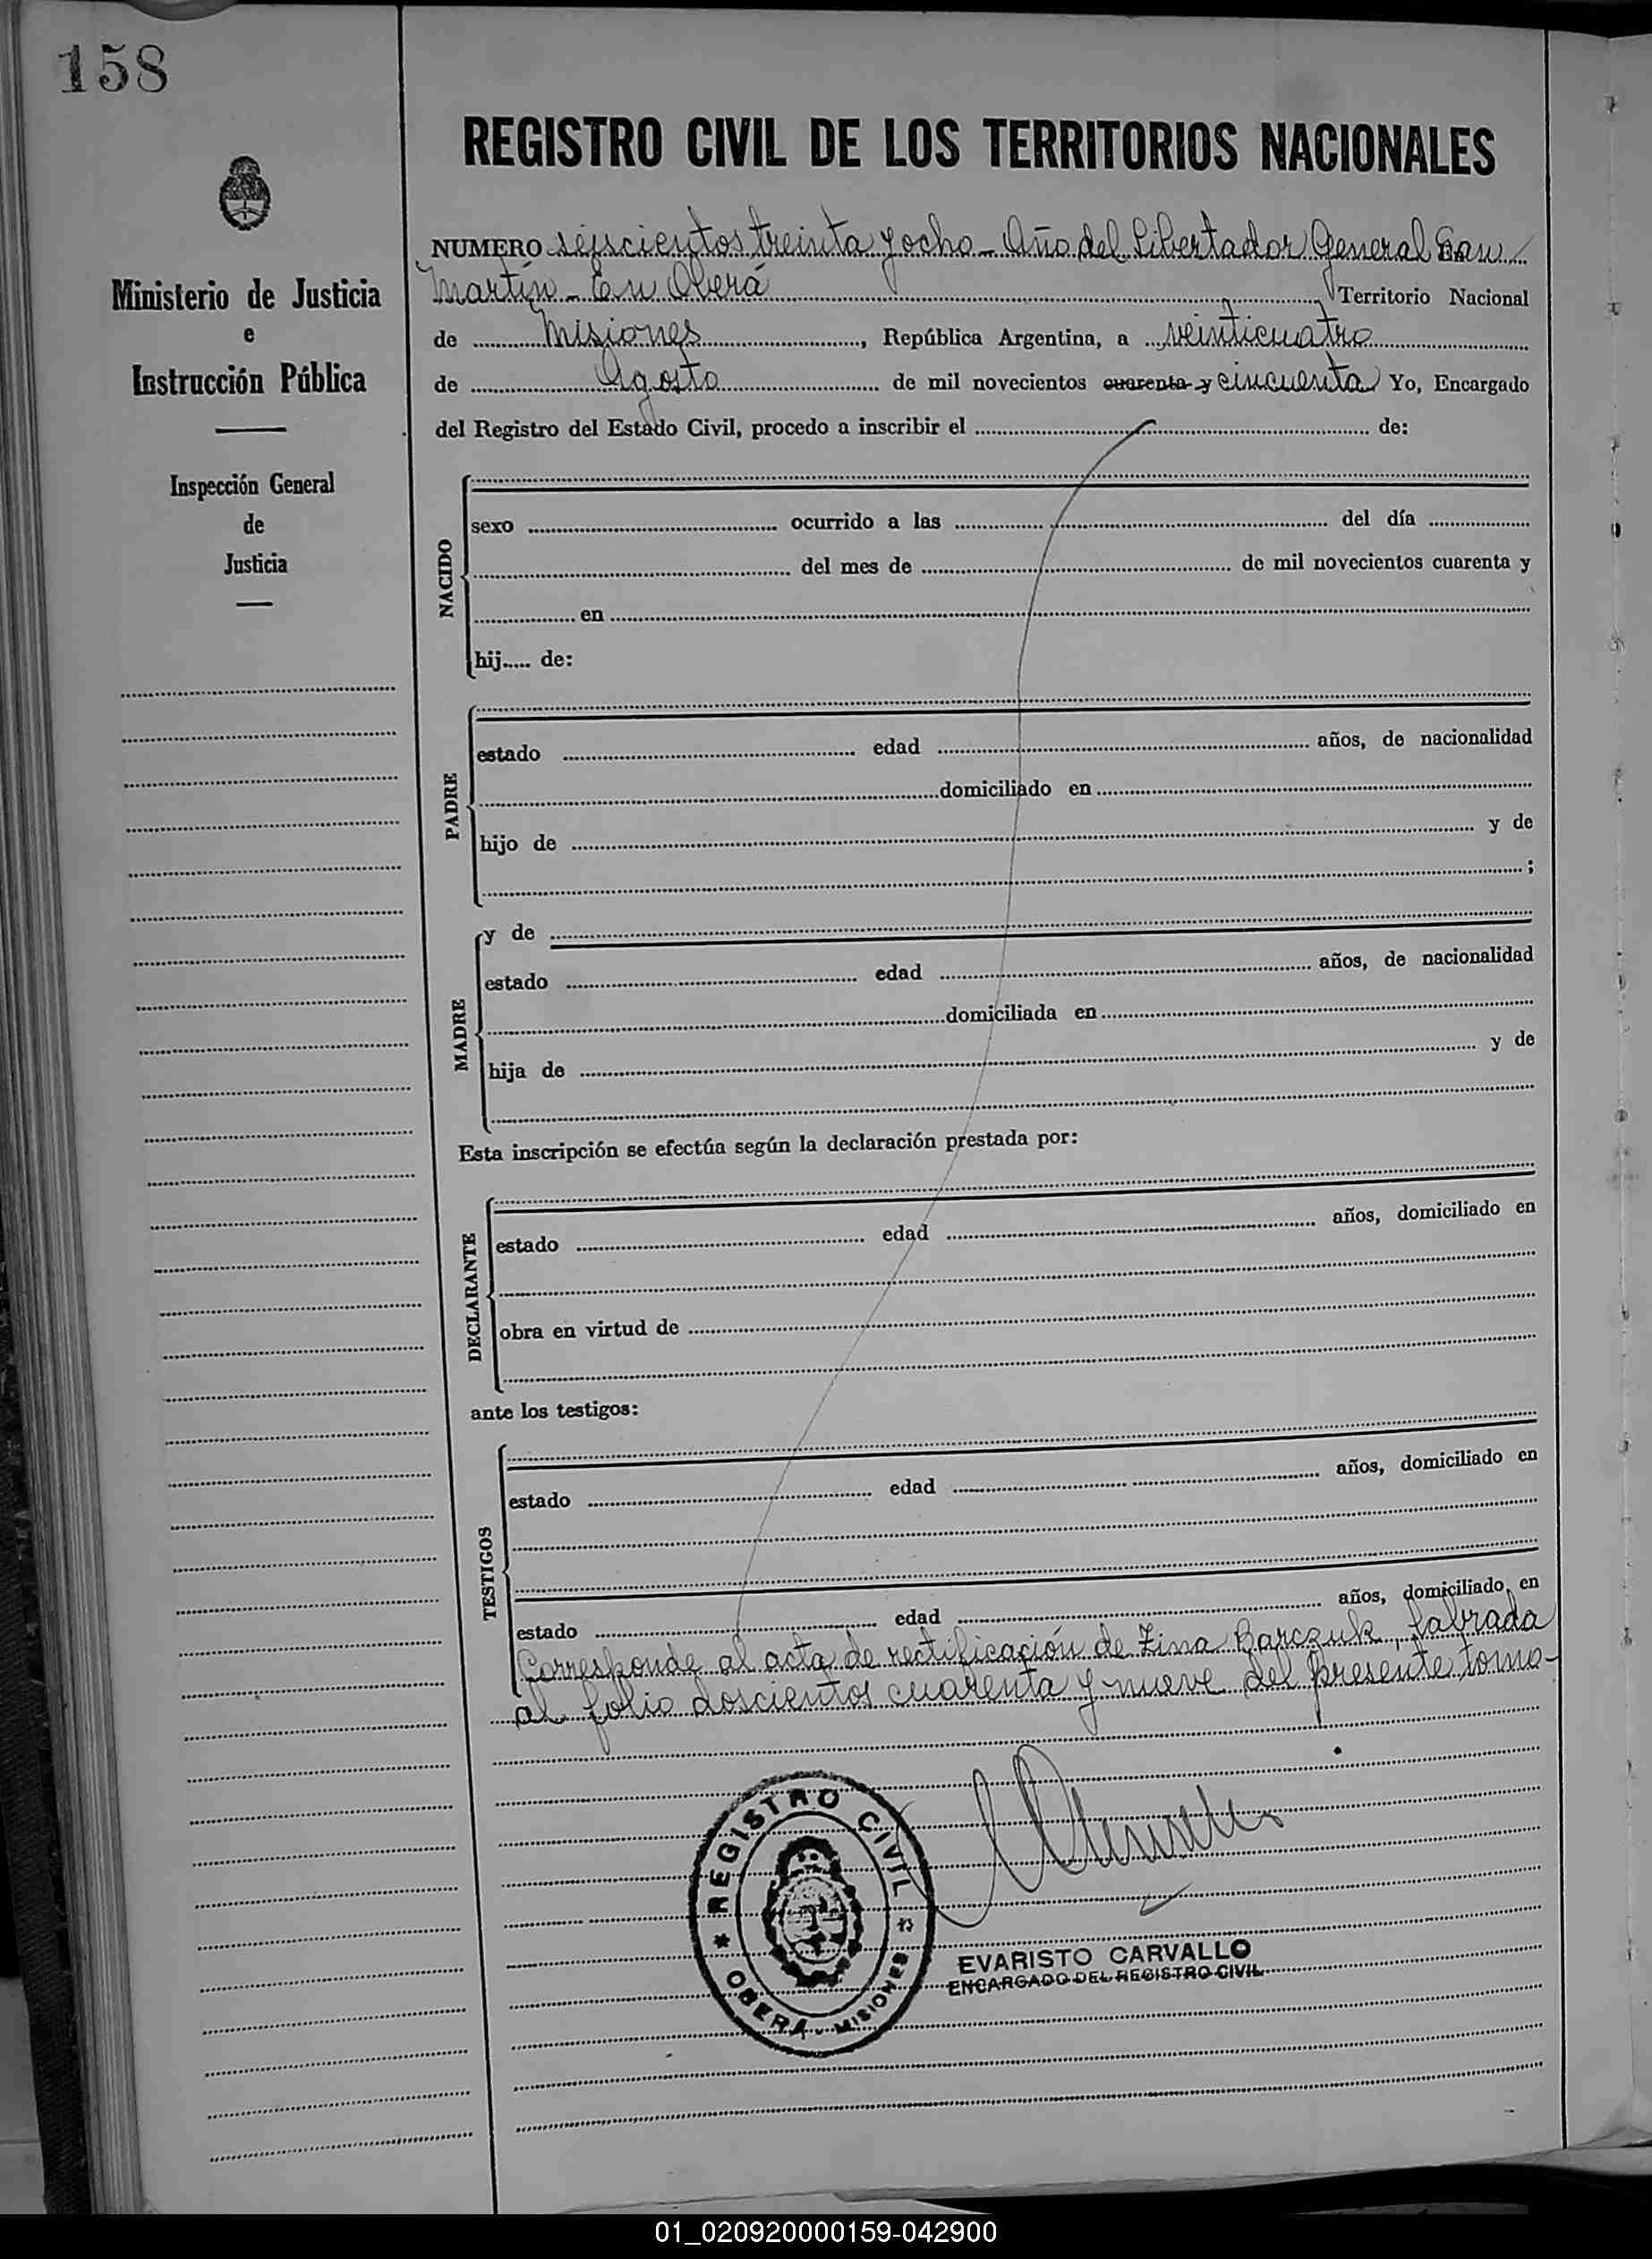 158
REGISTRO CIVIL DE LOS TERRITORIOS NACIONALES
Ministerio de Justicia
e
Instrucción Pública
Inspección General
de
Justicia
NUMERO seiscientos treinta y ocho - Año del Libertador General San
Martín - En Oberá Territorio Nacional
de Misiones, República Argentina, a veinticuatro
de Agosto de mil novecientos cuarenta y cincuenta Yo, Encargado
del Registro del Estado Civil, procedo a inscribir el de:
NACIDO
sexo ocurrido a las del día
del mes de de mil novecientos cuarenta y
en
hij..... de:
PADRE
estado edad años, de nacionalidad
domiciliado en
hijo de y de
;
MADRE
y de
estado edad años, de nacionalidad
domiciliada en
hija de y de
Esta inscripción se efectúa según la declaración prestada por:
DECLARANTE
estado edad años, domiciliado en
obra en virtud de
ante los testigos:
TESTIGOS
estado edad años, domiciliado en
estado edad años, domiciliado en
Corresponde al acta de rectificación de Zina Barczuk, labrada
al folio doscientos cuarenta y nueve del presente tomo-
REGISTRO CIVIL
OBERÁ - MISIONES
EVARISTO CARVALLO
ENCARGADO DEL REGISTRO CIVIL
01_020920000159-042900